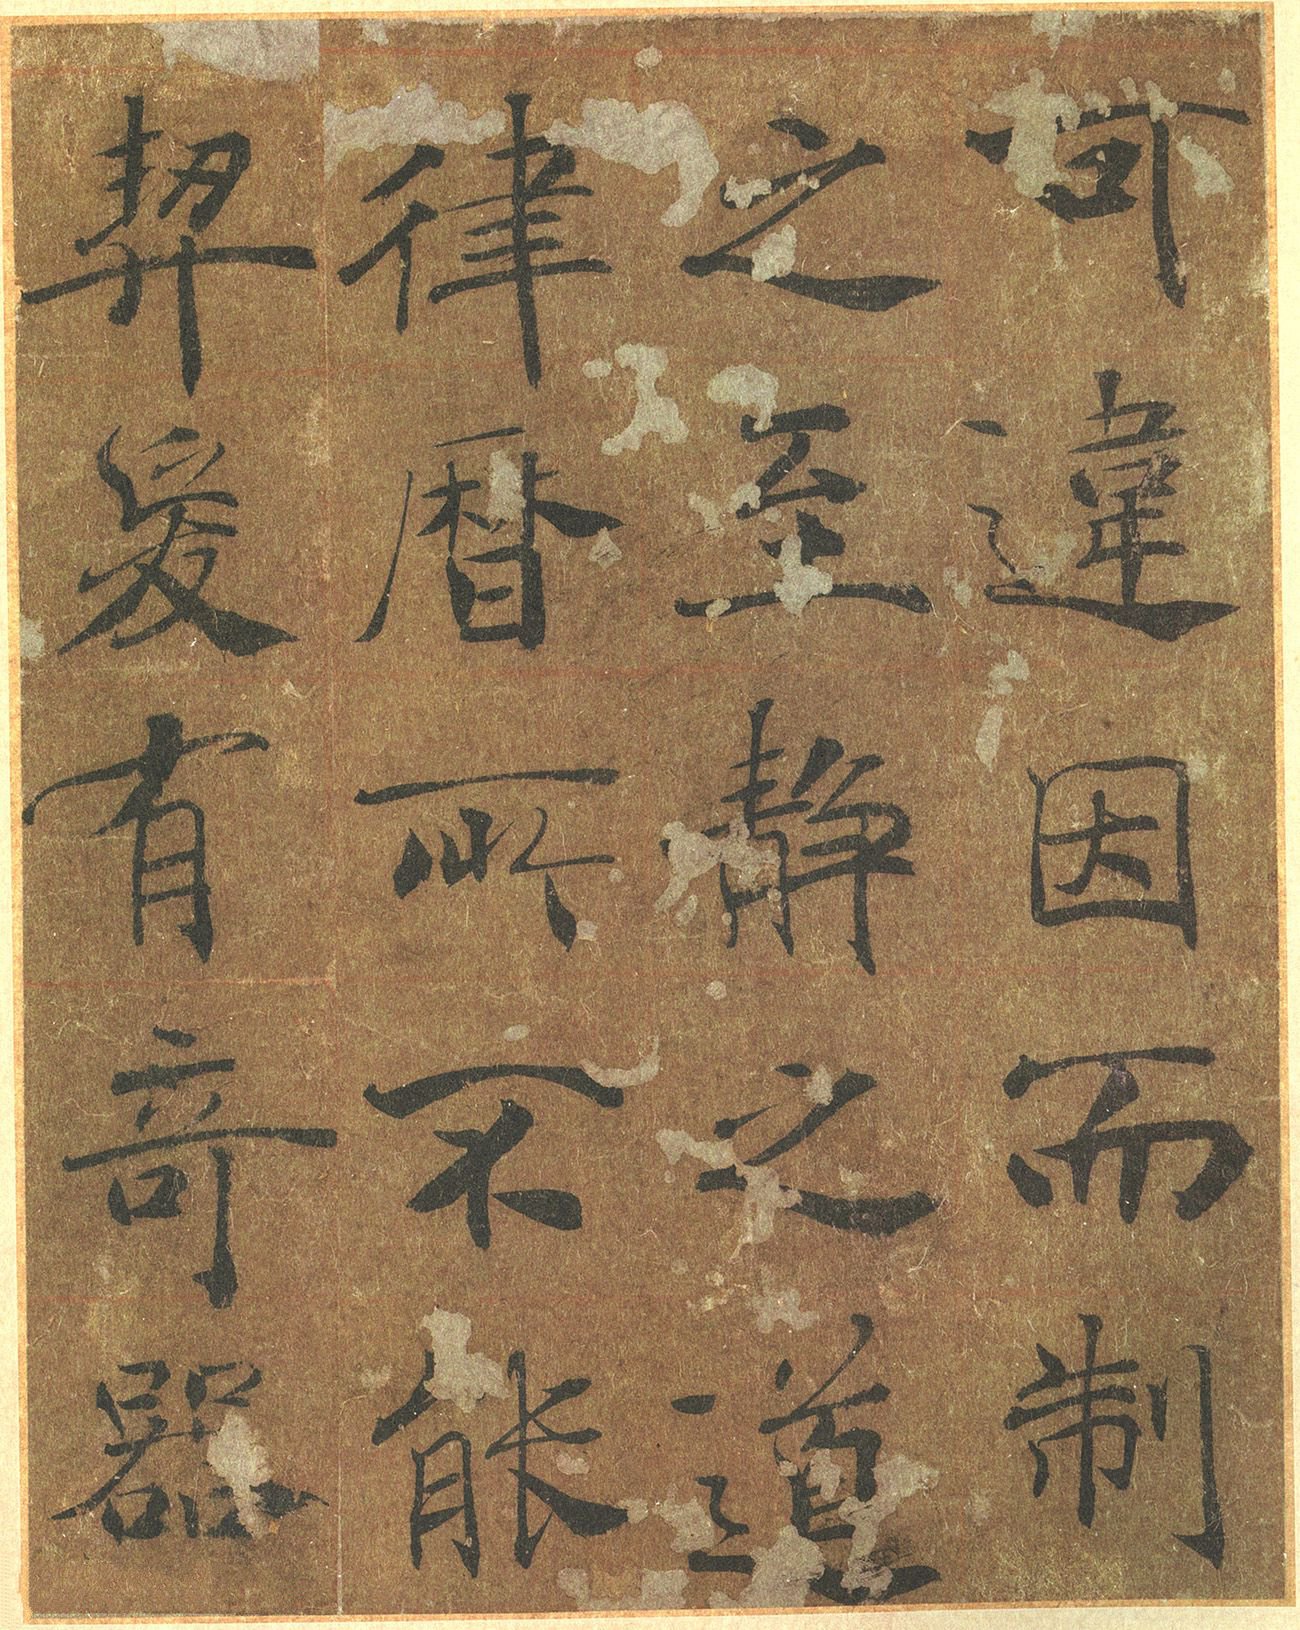 可違因而制
之至静之道
律暦所不能
契爰有竒器